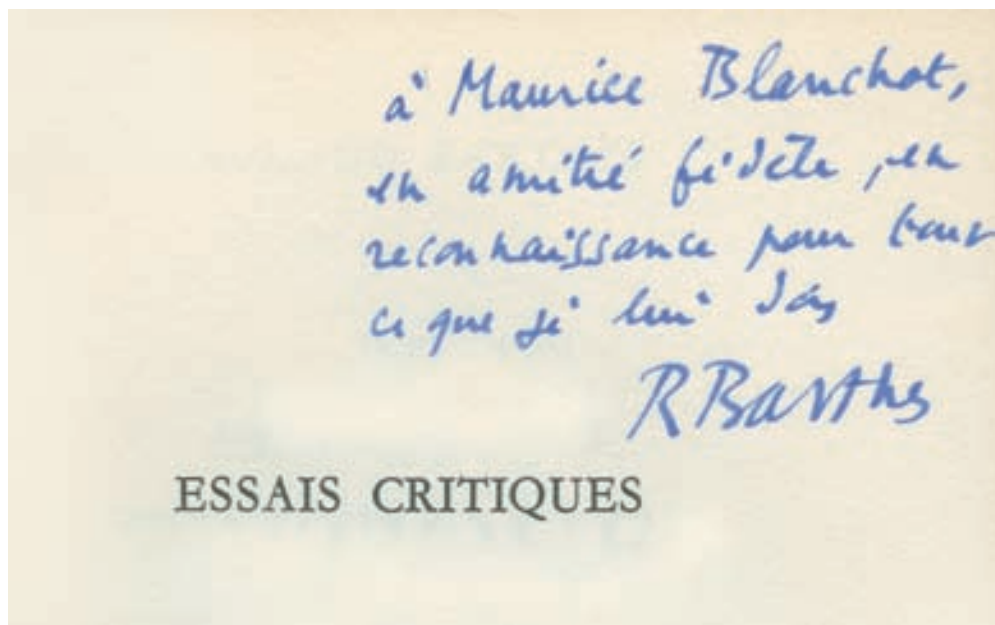 à Maurice Blanchot,
en amitié fidèle, en
reconnaissance pour tout
ce que je lui dois
R Barthes
ESSAIS CRITIQUES